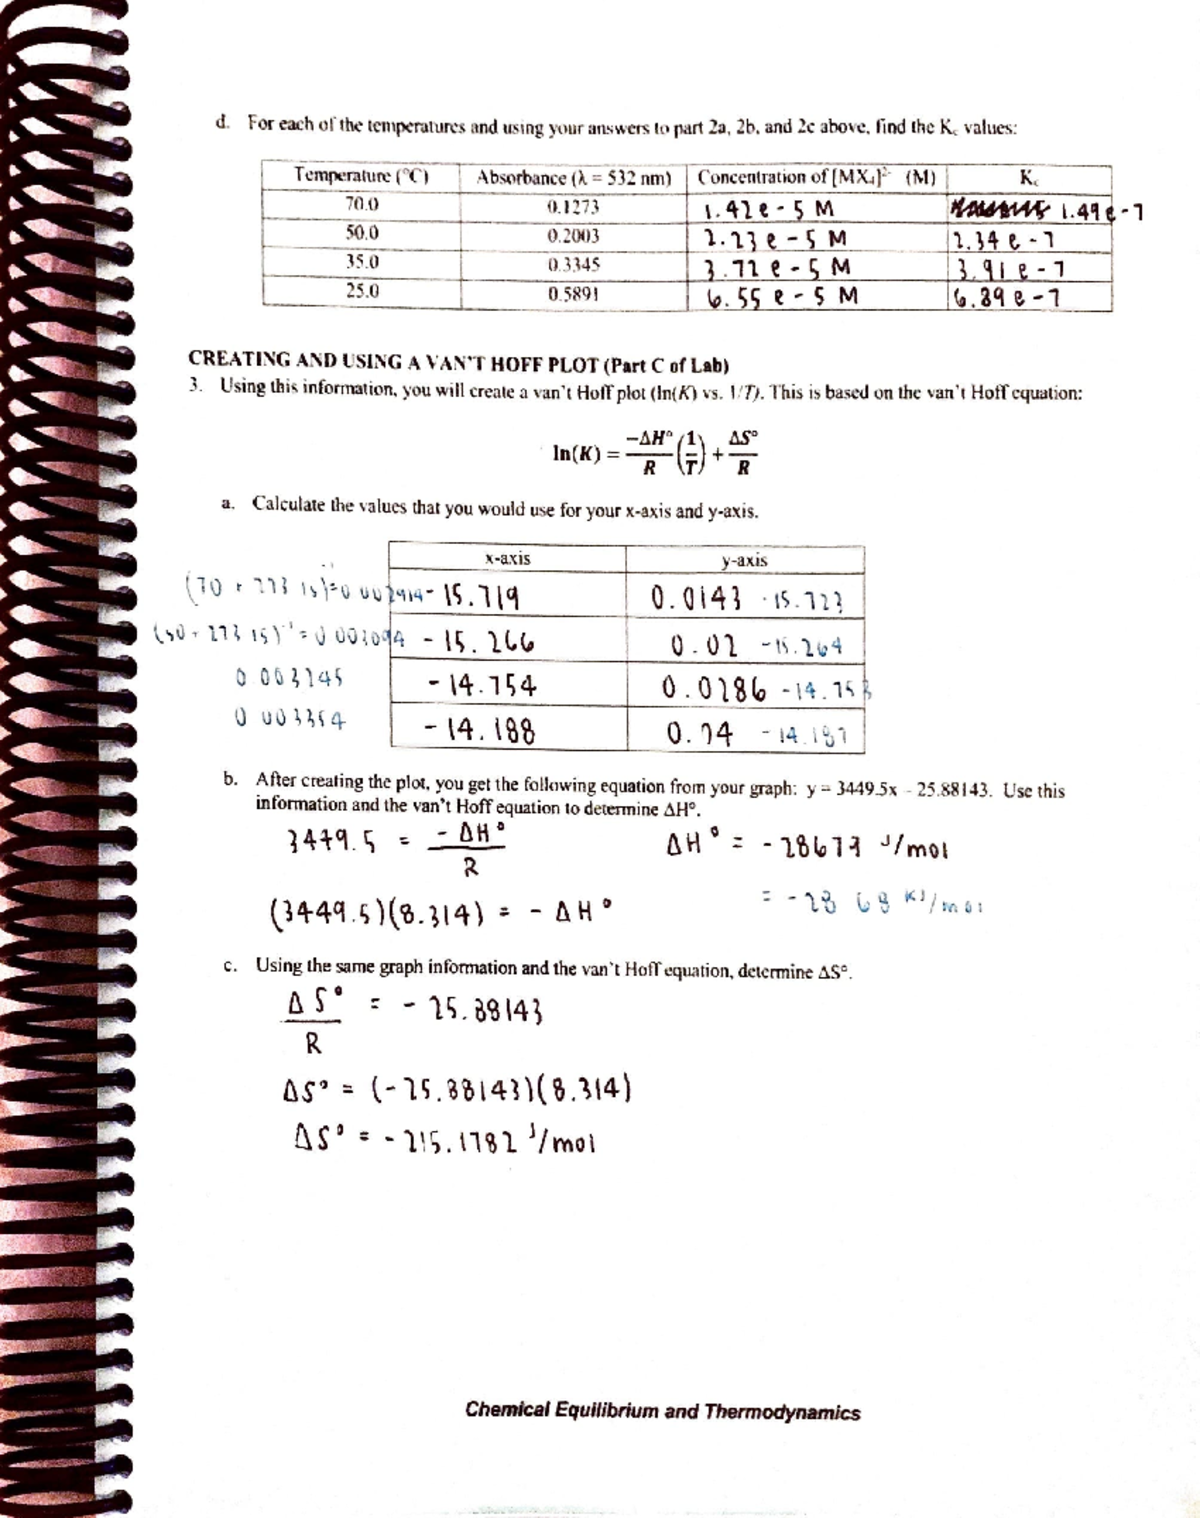 d. For each of the temperatures and using your answers to part 2a, 2b, and 2c above, find the Kc values:
Temperature (°C) Absorbance (λ = 532 nm) Concentration of [MX₄]²⁻ (M) Kc
70.0 0.1273 1.42e-5 M 1.49e-7
50.0 0.2003 2.23e-5 M 2.34e-7
35.0 0.3345 3.72e-5 M 3.91e-7
25.0 0.5891 6.55e-5 M 6.89e-7
CREATING AND USING A VAN'T HOFF PLOT (Part C of Lab)
3. Using this information, you will create a van't Hoff plot (ln(K) vs. 1/T). This is based on the van't Hoff equation:
ln(K) = −ΔH°/R (1/T) + ΔS°/R
a. Calculate the values that you would use for your x-axis and y-axis.
x-axis y-axis
(70 + 273.15)⁻¹=0.002914 -15.719 0.0143 -15.723
(50 + 273.15)⁻¹=0.003094 -15.266 0.02 -15.264
0.003245 -14.754 0.0286 -14.753
0.003354 -14.188 0.04 -14.187
b. After creating the plot, you get the following equation from your graph: y = 3449.5x - 25.88143. Use this
information and the van't Hoff equation to determine ΔH°.
3449.5 = -ΔH°/R ΔH° = -28679 J/mol
(3449.5)(8.314) = -ΔH° = -28.68 KJ/mol
c. Using the same graph information and the van't Hoff equation, determine ΔS°.
ΔS°/R = -25.88143
ΔS° = (-25.88143)(8.314)
ΔS° = -215.1782 J/mol
Chemical Equilibrium and Thermodynamics